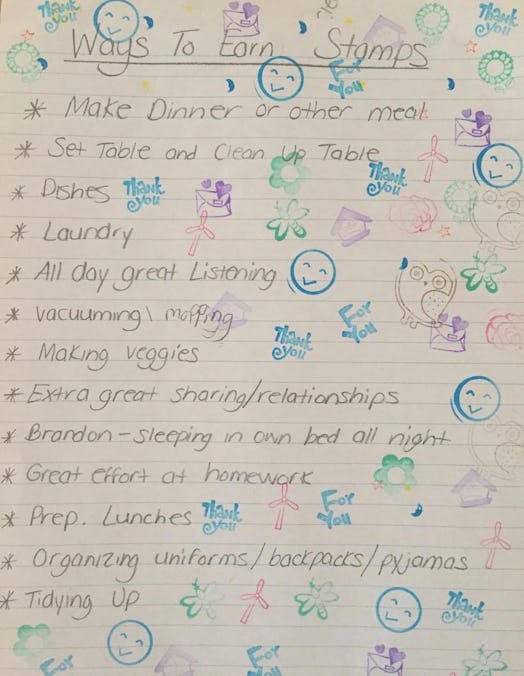 Thank you
Thank you
Ways To Earn Stamps
For You
* Make Dinner or other meal
* Set Table and Clean Up Table
Thank you
* Dishes Thank you
* Laundry
* All day great Listening
* vacuuming\ mopping For You
Thank you
* Making veggies
* Extra great sharing/relationships
* Brandon - sleeping in own bed all night
* Great effort at homework
* Prep. Lunches Thank you For You
* Organizing uniforms/backpacks/pyjamas
* Tidying Up Thank you
For For You Thank you